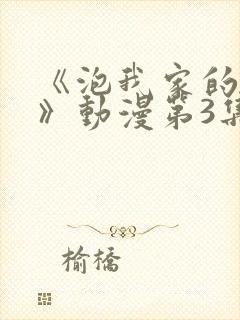 《泡我家的
》動漫第3集
榆橋